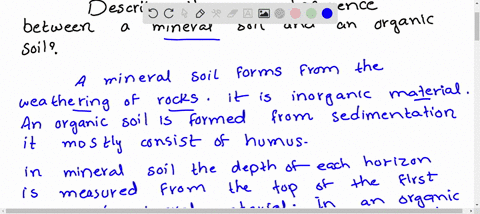 between a mineral soil and an organic
soil?.
A mineral soil forms from the
weathering of rocks. it is inorganic material.
An organic soil is formed from sedimentation
it mostly consist of humus.
in mineral soil the depth of each horizon
is measured from the top of the first
In an organic